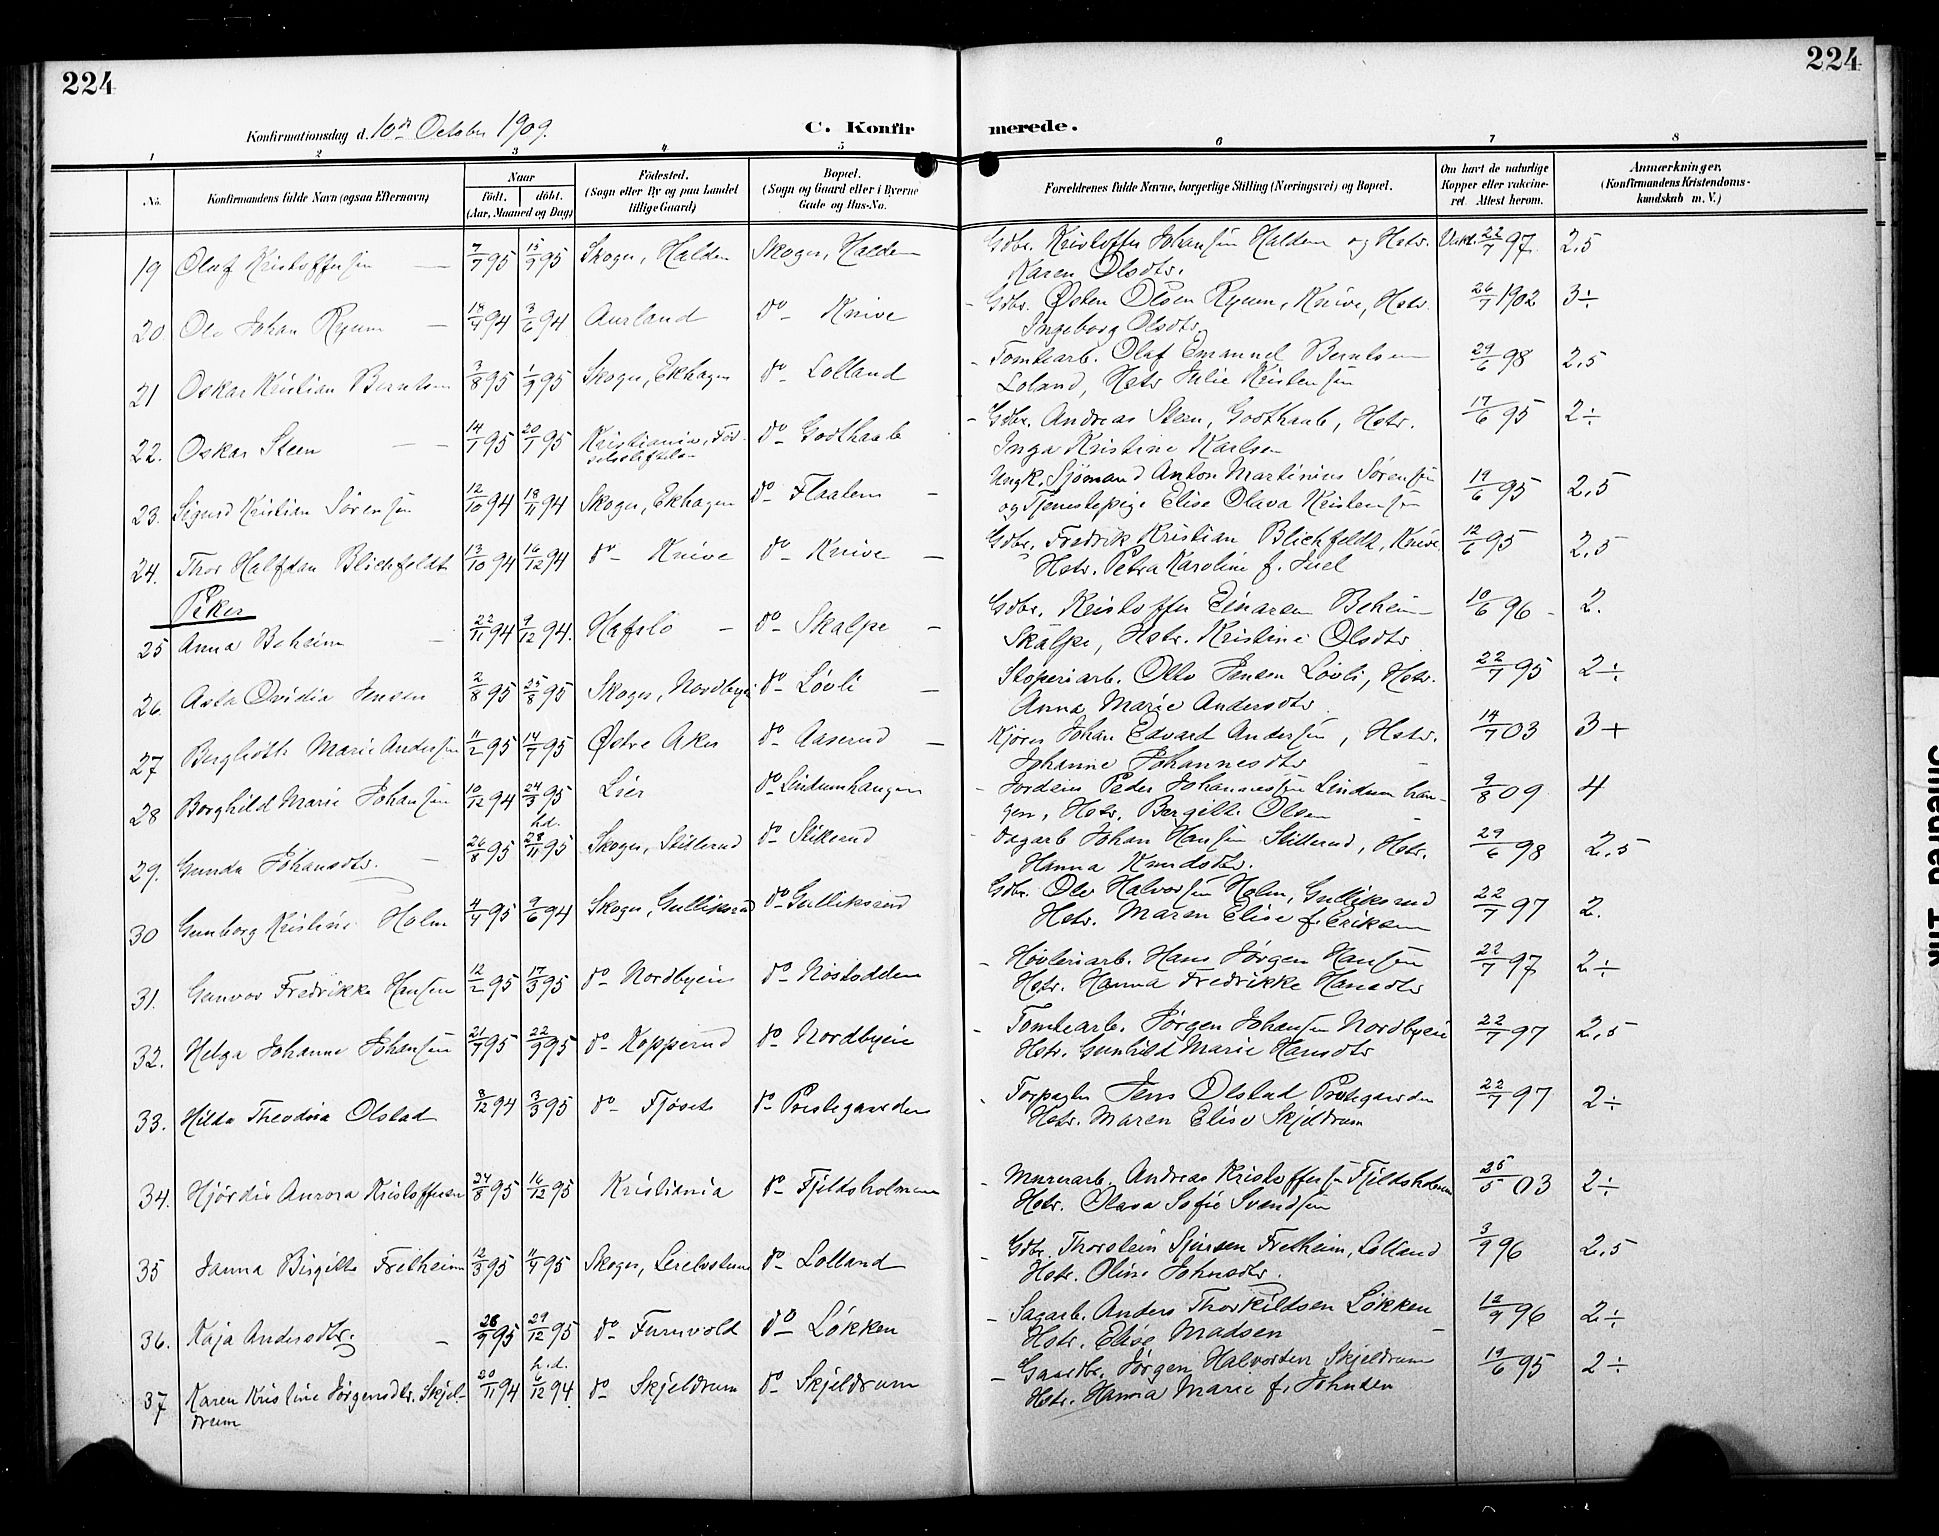 224
224
Konfirmationsdag d. 10de October 1909.
C. Konfirmerede.
1 2 3 4 5 6 7 8
No.
Konfirmandens fulde Navn (ogsaa Efternavn)
Naar
født. døbt.
(Aar, Maaned og Dag)
Fødested.
(Sogn eller By og paa Landet
tillige Gaard)
Bopæl.
(Sogn og Gaard eller i Byerne
Gade og Hus-No.
Forældrenes fulde Navne, borgerlige Stilling (Næringsvei) og Bopæl.
Om havt de naturlige
Kopper eller vakcineret.
Attest herom.
Anmærkninger.
(Konfirmandens Kristendomskundskab
m. V.)
19 Olaf Kristoffersen — 7/7 95 15/9 95 Skoger, Halden Skoger, Halden Gdbr. Kristoffer Johansen Halden og Hstr. Vakc. 22/7 97. 2,5
Karen Olsdtr.
20. Ole Johan Ryum — 14/4 94 3/6 94 Aurland do Knive - Gdbr. Østen Olsen Ryum, Knive, Hstr. 26/7 1902 3÷
Ingeborg Olsdtr
21 Oskar Kristian Berntsen 3/8 95 1/9 95 Skoger, Ekhagen do Lolland - Tomtearb. Olaf Emanuel Berntsen 29/6 98 2,5
Loland, Hstr Julie Kristensen
22. Oskar Steen — 14/1 95 20/1 95 Kristiania, Fødselsstiftelsen do Godthaab - Gdbr. Andreas Steen, Godthaab, Hstr. 17/6 95 2÷
Inga Kristine Karlsen
23. Sigurd Kristian Sørensen 12/10 94 18/11 94 Skoger, Ekhagen do Flaaten - Ungk. Sjømand Anton Martinius Sørensen 19/6 95 2,5
og Tjenestepige Elise Olava Kristensen
24. Thor Halfdan Blichfeldt 13/10 94 16/12 94 do Knive do Knive - Gdbr. Fredrik Kristian Blichfeldt, Knive, 12/6 95 2,5
Hstr. Petra Karoline f. Juel
Piker
25 Anna Beheim — 22/11 94 9/12 94. Hafslo - do Skalpe - Gdbr. Kristoffer Einarsen Beheim 10/6 96 - 2.
Skalpe, Hstr. Kristine Olsdtr
26. Asta Ovidia Jensen 2/8 95 25/8 95 Skoger, Nordbyen do Løvli - Støperiarb. Otto Jensen Løvli, Hstr. 22/7 95 2÷
Anna Marie Andersdtr
27 Bergliøth Marie Andersen 11/2 95 14/7 95 Østre Aker do Aaserud - Kjører Johan Edvart Andersen, Hstr. 14/7 03 3+
Johanne Johannesdtr
28 Borghild Marie Johansen 10/12 94 24/3 95 Lier do Lindumhaugen - Jordeier Peder Johannessen Lindumhaugen, 9/8 09 4
Hstr. Bergitte Olsen
29. Gunda Johansdtr. - 26/8 95 h.d. 28/11 95 Skoger, Stillerud do Stikerud - Dagarb Johan Hansen Stillerud, Hstr. 29/6 98 2,5
Hanna Knudsdtr.
30 Gunborg Kristine Holm 4/4 95 9/6 94 Skoger, Gulliksrud do Gulliksrud Gdbr. Ole Halvorsen Holm, Gulliksrud 22/7 97 2.
Hstr. Maren Elise f. Eriksen
31. Gunvor Fredrikke Hansen 12/2 95 17/3 95 do Nordbyen do Nøstodden - Høvleriarb. Hans Jørgen Hansen 22/7 97 2÷
Hstr. Hanna Fredrikke Hansdtr
32. Helga Johanne Johansen 21/7 95 22/9 95 do Kopperud do Nordbyeie - Tomtearb. Jørgen Johansen Nordbyeie 22/7 97 2,5
Hstr. Gunhild Marie Hansdtr
33. Hilda Theodora Olstad 8/12 94 3/3 95 do Fjøset do Prestegaarden - Forpagter Jens Olstad Prestegaarden 22/7 97 2÷
Hstr. Maren Elise Skjeldrum
34. Hjørdis Aurora Kristoffersen 24/8 95 16/12 95 Kristiania do Fjeldsholmen - Murerarb. Andreas Kristoffersen Fjeldsholmen 25/5 03 2÷
Hstr. Olava Sofie Svendsen
35 Janna Birgitte Fretheim 12/3 95 11/4 95 Skoger, Leirelvstuen do Lolland - Gdbr. Thorstein Sjursen Fretheim, Lolland 3/9 96 2,5
Hstr. Oline Johnsdtr.
36. Kaja Andersdtr. - 28/9 95 29/12 95 do Furuvold do Løkken - Sagarb. Anders Thorkildsen Løkken 12/9 96 2÷
Hstr. Elise Madsen
37 Karen Kristine Jørgensdtr. Skjeldrum 20/11 94 h.d. 6/12 94 do Skjeldrum do Skjeldrum - Gaardbr. Jørgen Halvorsen Skjeldrum 19/6 95 2÷
Hstr. Hanna Marie f. Johnsen